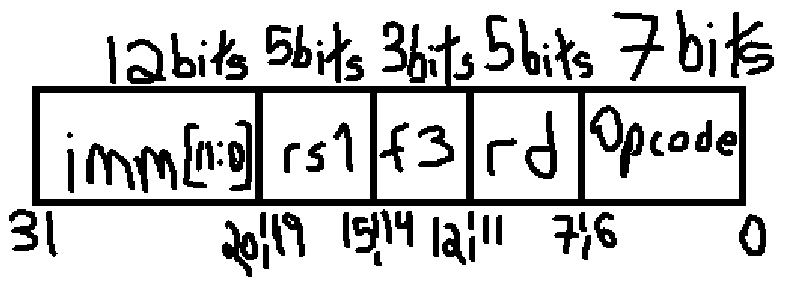 12bits 5bits 3bits 5bits 7bits
imm[11:0] rs1 f3 rd Opcode
31 20 19 15 14 12 11 7 6 0